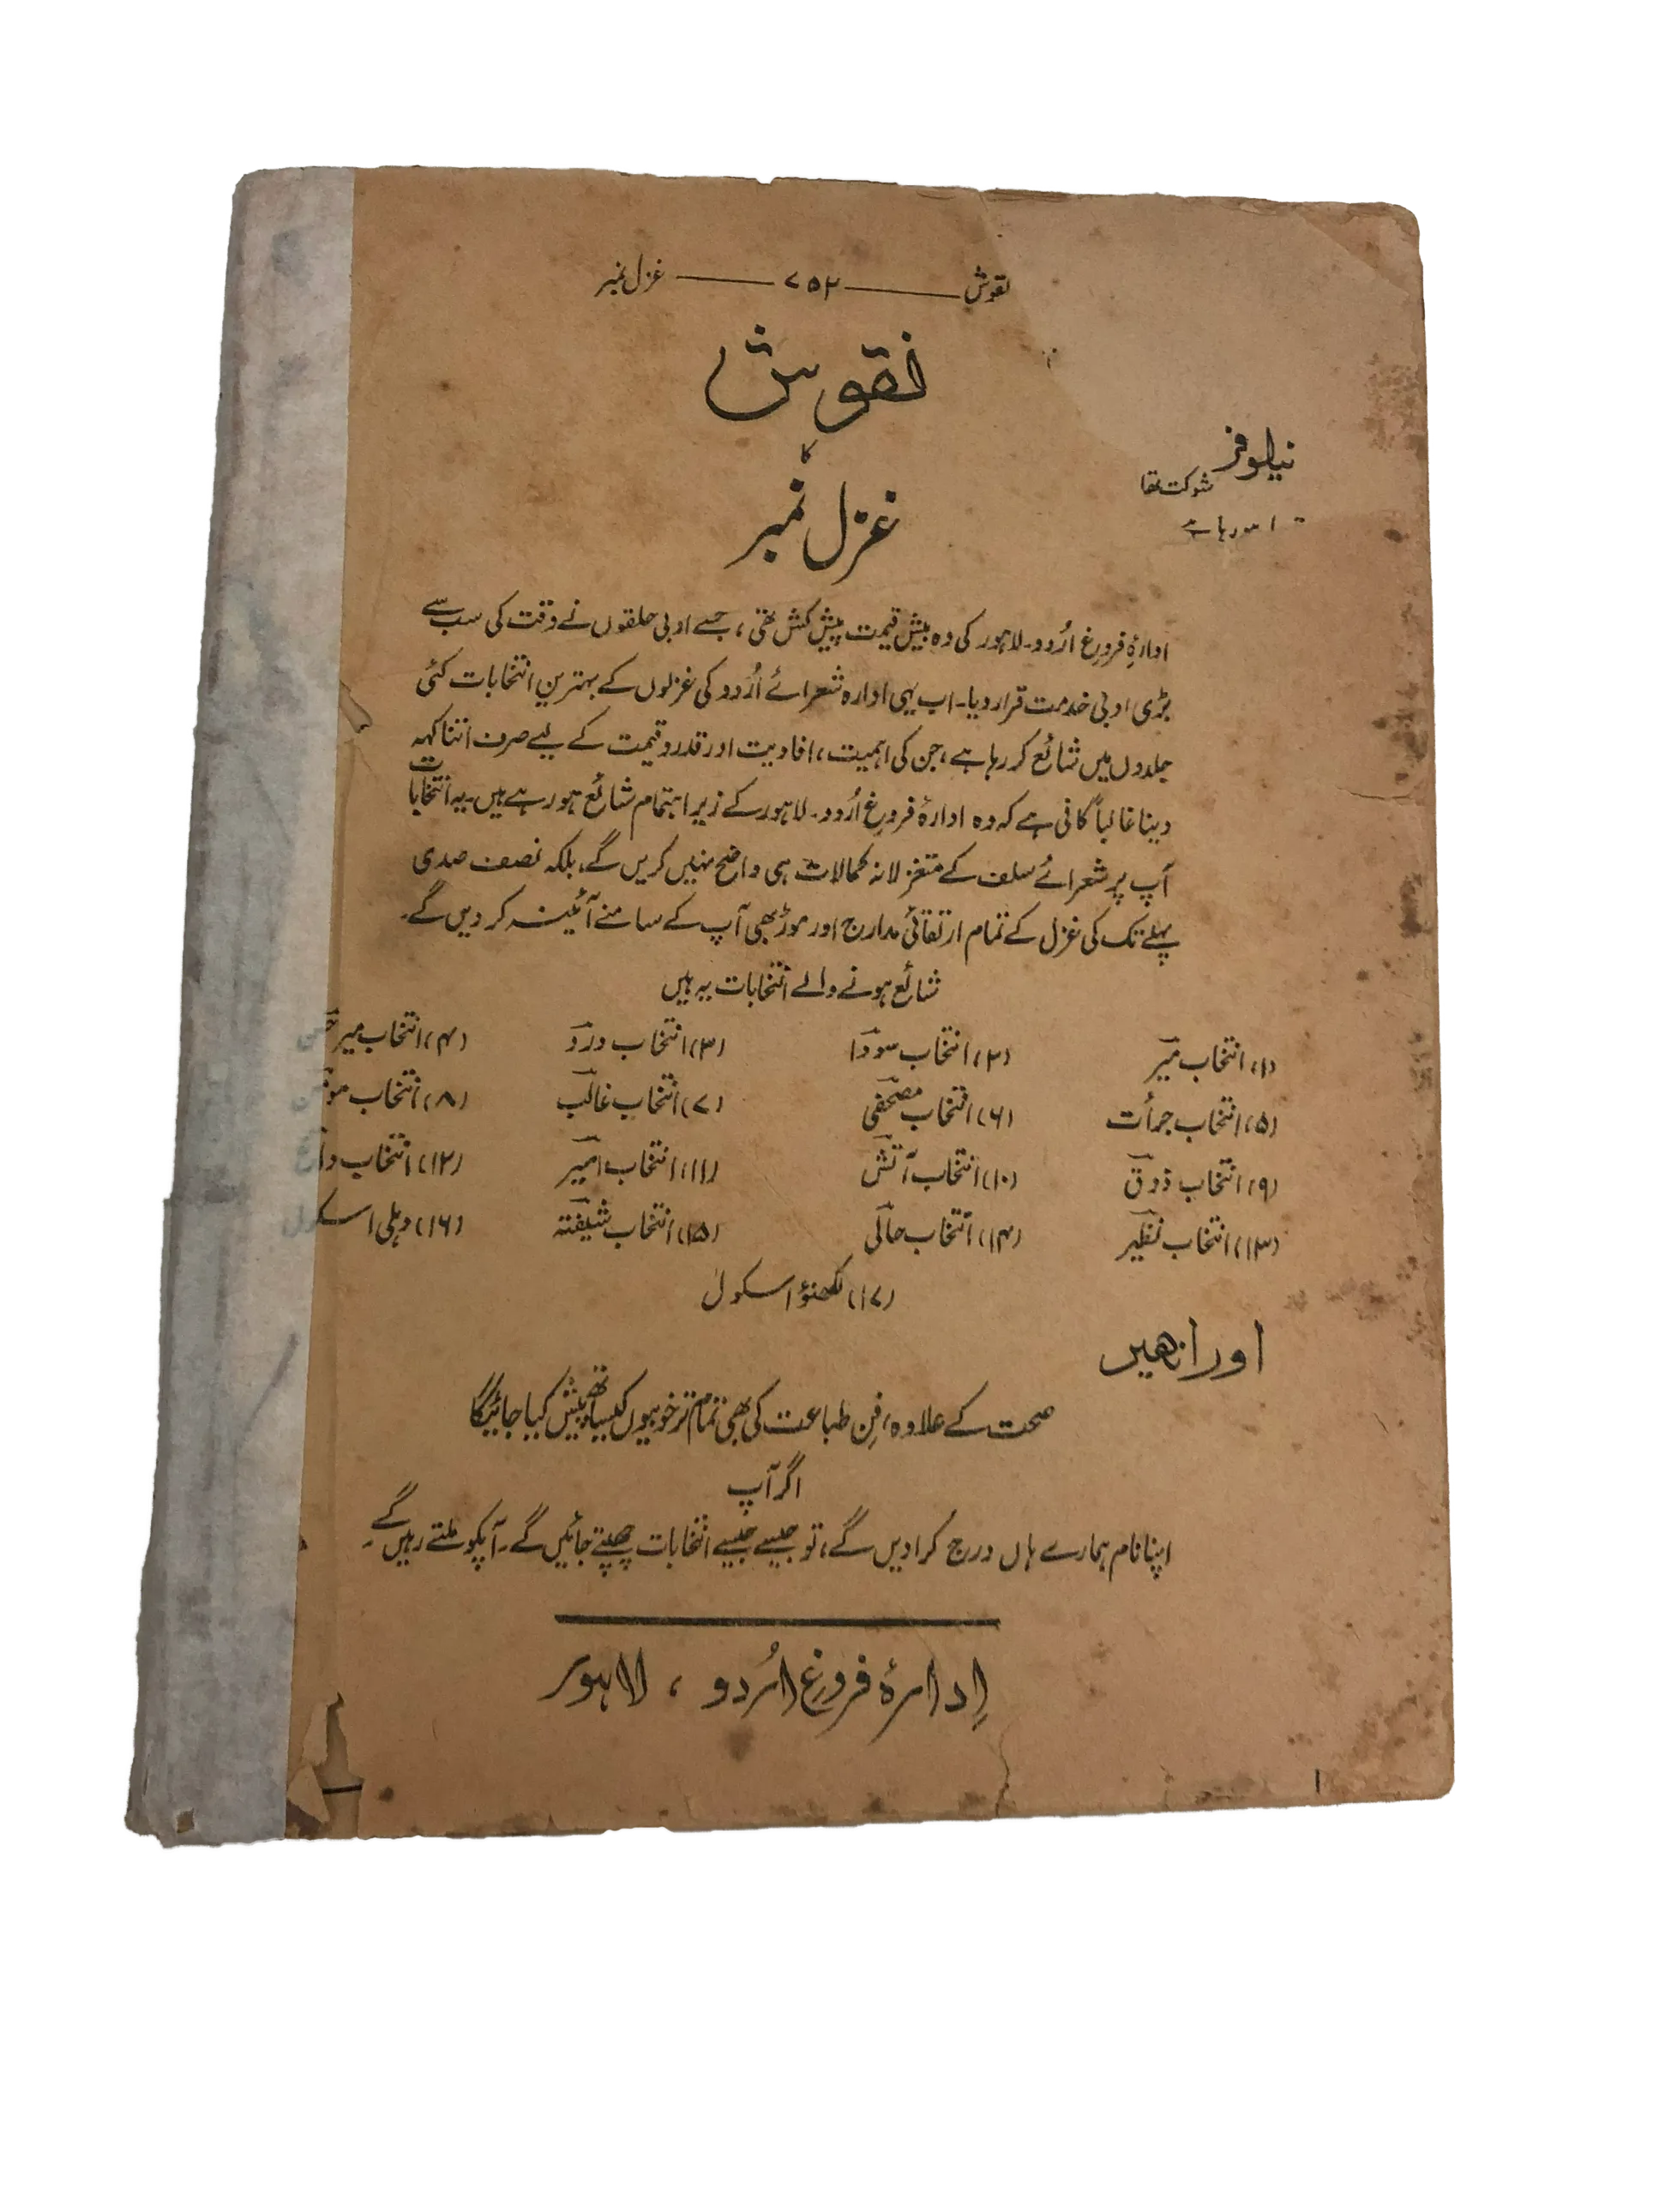 نقوش ——— ۷۵۲ ——— غزل نمبر
نقوش
کا
غزل نمبر
نیلوفر
شوکت تھا
ہو رہا ہے
ادارۂ فروغِ اُردو۔ لاہور کی وہ بیش قیمت پیش کش تھی، جسے ادبی حلقوں نے وقت کی سب سے
بڑی ادبی خدمت قرار دیا۔ اب یہی ادارہ شعرائے اُردو کی غزلوں کے بہترین انتخابات کئی
جلدوں میں شائع کر رہا ہے، جن کی اہمیت، افادیت اور قدر و قیمت کے لیے صرف اتنا کہہ
دینا غالباً کافی ہے کہ وہ ادارۂ فروغِ اُردو۔ لاہور کے زیرِ اہتمام شائع ہو رہے ہیں۔ یہ انتخابات
آپ پر شعرائے سلف کے متغزلانہ کمالات ہی واضح نہیں کریں گے، بلکہ نصف صدی
پہلے تک کی غزل کے تمام ارتقائی مدارج اور موڑ بھی آپ کے سامنے آئینہ کر دیں گے۔
شائع ہونے والے انتخابات یہ ہیں
(۱) انتخاب میرؔ (۲) انتخاب سوداؔ (۳) انتخاب دردؔ (۴) انتخاب میر حسنؔ
(۵) انتخاب جرأت (۶) انتخاب مصحفیؔ (۷) انتخاب غالبؔ (۸) انتخاب مومنؔ
(۹) انتخاب ذوقؔ (۱۰) انتخاب آتشؔ (۱۱) انتخاب امیرؔ (۱۲) انتخاب داغؔ
(۱۳) انتخاب نظیرؔ (۱۴) انتخاب حالیؔ (۱۵) انتخاب شیفتہؔ (۱۶) دہلی اسکول
(۱۷) لکھنؤ اسکول
اور انھیں
صحت کے علاوہ، فنِ طباعت کی بھی تمام تر خوبیوں کیساتھ پیش کیا جائیگا
اگر آپ
اپنا نام ہمارے ہاں درج کرا دیں گے، تو جیسے جیسے انتخابات چھپتے جائیں گے۔ آپکو ملتے رہیں گے۔
اِدارۂ فروغِ اُردو ، لاہور